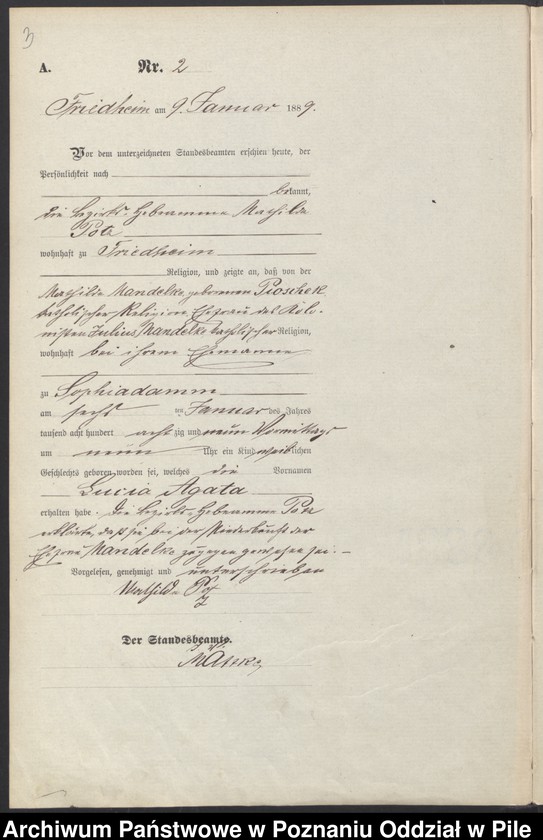 3
A. Nr. 2
Friedheim am 9. Januar 1889.
Vor dem unterzeichneten Standesbeamten erschien heute, der
Persönlichkeit nach
bekannt,
die Bezirks-Hebeamme Mathilde
wohnhaft zu Friedheim
Religion, und zeigte an, daß von der
Mathilde Mandelke, geborenen Proschek
katholischer Religion Ehefrau des Kolo-
nisten Julius Mandelke katholischer Religion,
wohnhaft bei ihrem Ehemanne
zu Sophiadamm
am sechs ten Januar des Jahres
tausend acht hundert acht zig und neun Vormittags
um neun Uhr ein Kind weiblichen
Geschlechts geboren worden sei, welches die Vornamen
Lucia Agata
erhalten habe. Die Bezirks-Hebeamme
erklärte, daß sie bei der Niederkunft der
Ehefrau Mandelke zugegen gewesen sei. –
Vorgelesen, genehmigt und unterschrieben
Mathilde
Der Standesbeamte.
Archiwum Państwowe w Poznaniu Oddział w Pile